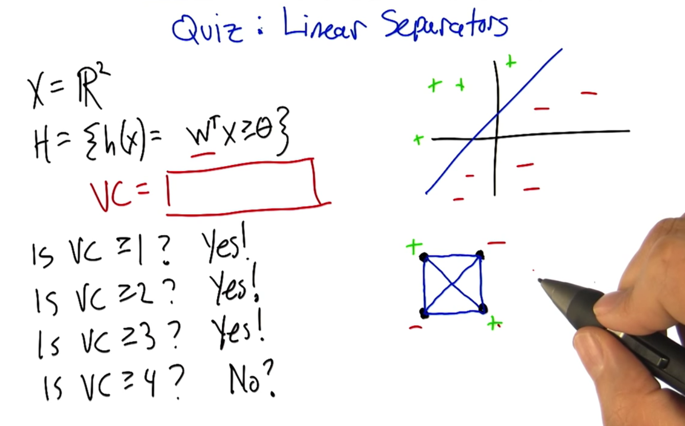 Quiz: Linear Separators
X = ℝ²
H = {h(x) = wᵀx ≥ θ}
VC =
Is VC ≥ 1? Yes!
Is VC ≥ 2? Yes!
Is VC ≥ 3? Yes!
Is VC ≥ 4? No?
+
+ +
− −
+
−
− −
−
+ −
− +